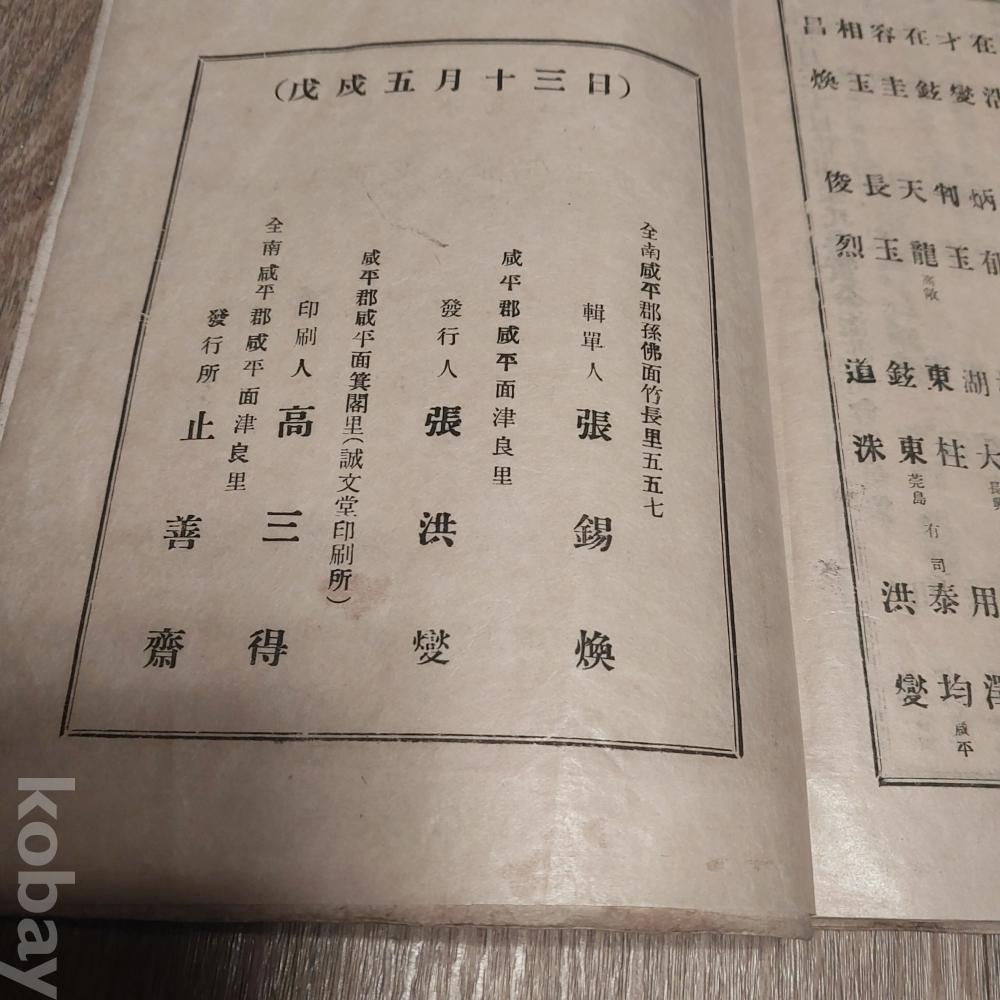 (戊戍五月十三日)
全南咸平郡孫佛面竹長里五五七
輯單人 張錫煥
咸平郡咸平面津良里
發行人 張洪燮
咸平郡咸平面箕閣里(誠文堂印刷所)
印刷人 高三得
全南咸平郡咸平面津良里
發行所 止善齋
在浩
才燮
在鉉
容圭
相玉
呂煥
炳郁
判玉
天龍
高敞
長玉
俊烈
湖大
東柱
鉉東
莞島
道洙
有司
用
泰均
咸平
洪燮
kobay